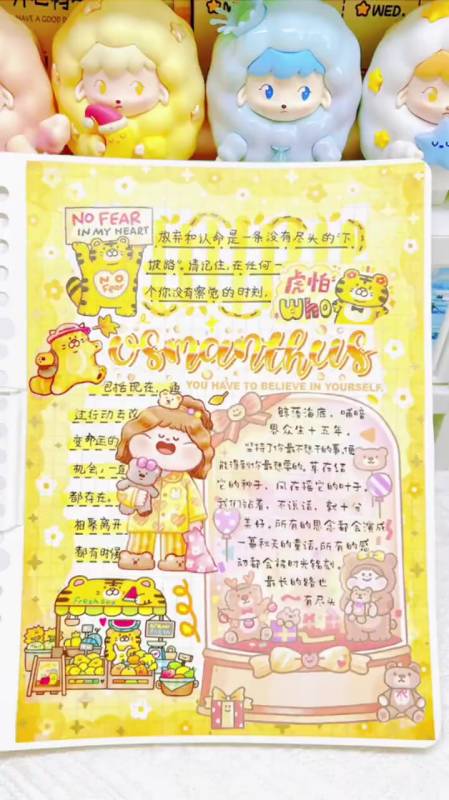 HAVE A GOOD
WED.
NO FEAR
IN MY HEART
NO
FEAR
放弃和认命是一条没有尽头的“下
坡路”。请记住,在任何一
个你没有察觉的时刻,
虎怕
Who
osmanthus
YOU HAVE TO BELIEVE IN YOURSELF.
包括现在,通
过行动去改
变命运的
机会,一直
都存在。
相聚离开
都有时候
鲸落海底,哺暗
界众生十五年。
当待了你最不想干的事,便
能得到你最想要的。草在结
它的种子,风在摇它的叶子。
我们站着,不说话,就十分
美好,所有的思念都会演成
一幕秋天的童话,所有的感
动都会被时光铭刻。
最长的路也
有尽头